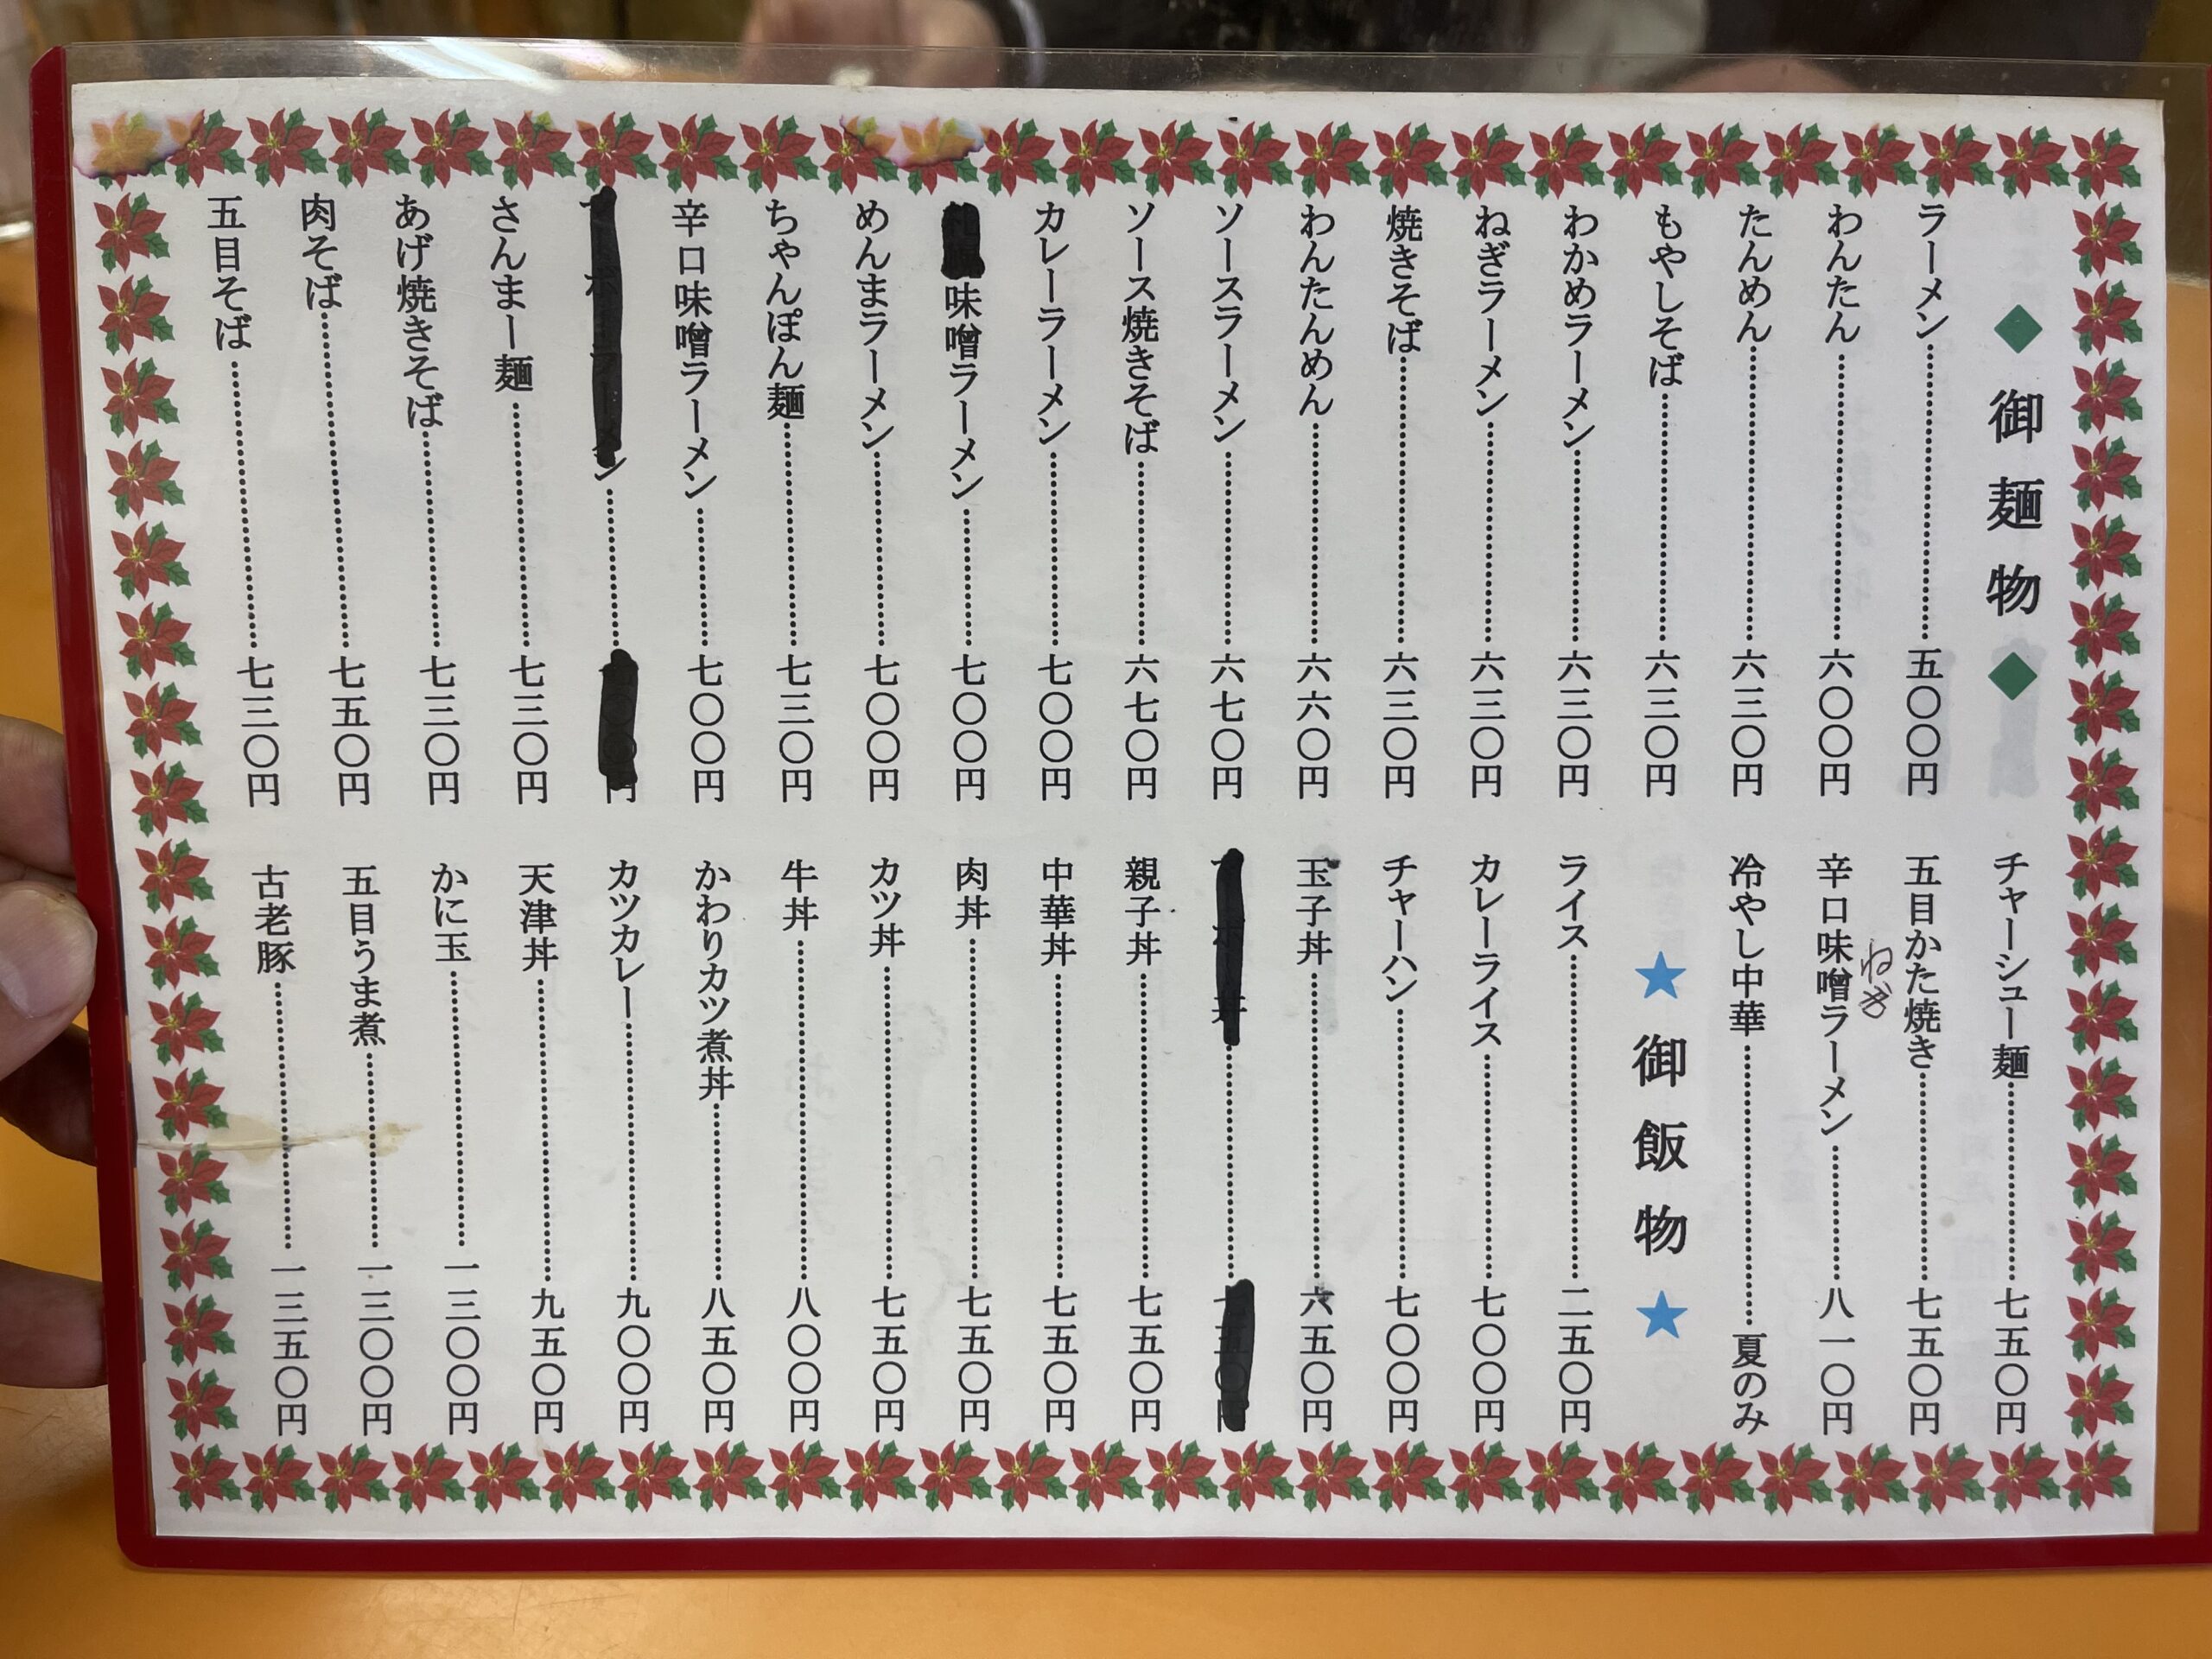 ◆ 御麺物 ◆
ラーメン 五〇〇円
わんたん 六〇〇円
たんめん 六三〇円
もやしそば 六三〇円
わかめラーメン 六三〇円
ねぎラーメン 六三〇円
焼きそば 六三〇円
わんたんめん 六六〇円
ソースラーメン 六七〇円
ソース焼きそば 六七〇円
カレーラーメン 七〇〇円
味噌ラーメン 七〇〇円
めんまラーメン 七〇〇円
ちゃんぽん麺 七三〇円
辛口味噌ラーメン 七〇〇円
さんまー麺 七三〇円
あげ焼きそば 七三〇円
肉そば 七五〇円
五目そば 七三〇円
チャーシュー麺 七五〇円
五目かた焼き 七五〇円
ねぎ
辛口味噌ラーメン 八一〇円
冷やし中華 夏のみ
★ 御飯物 ★
ライス 二五〇円
カレーライス 七〇〇円
チャーハン 七〇〇円
玉子丼 六五〇円
親子丼 七五〇円
中華丼 七五〇円
肉丼 七五〇円
カツ丼 七五〇円
牛丼 八〇〇円
かわりカツ煮丼 八五〇円
カツカレー 九〇〇円
天津丼 九五〇円
かに玉 一三〇〇円
五目うま煮 一三〇〇円
古老豚 一三五〇円